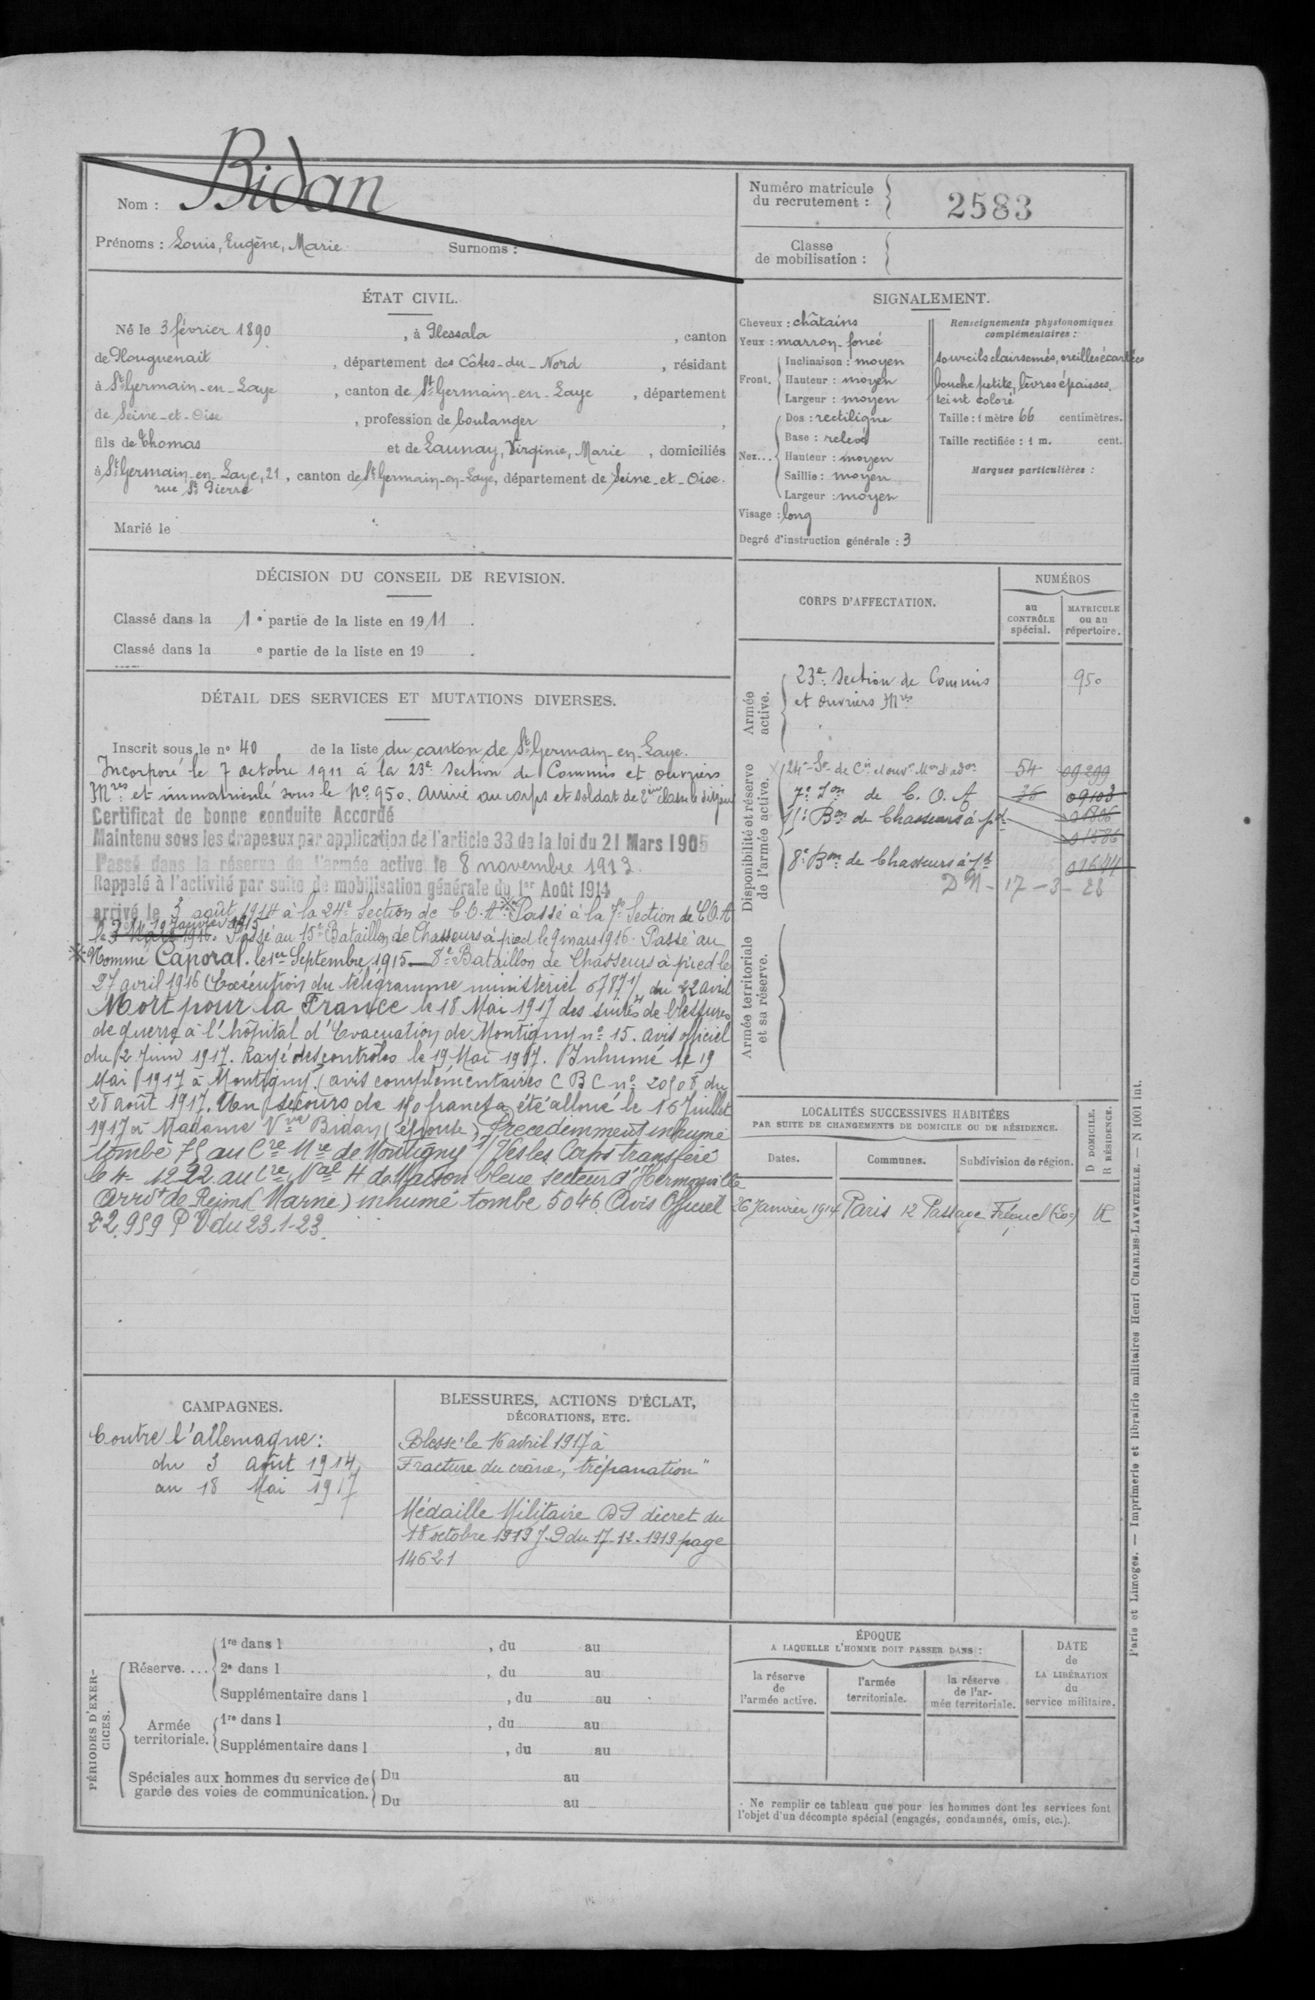 Nom : Bidan
Prénoms : Louis, Eugène, Marie Surnoms :
Numéro matricule
du recrutement : 2583
Classe
de mobilisation :
ÉTAT CIVIL.
Né le 3 février 1890, à Plessala, canton
de Plouguenait, département des Côtes-du-Nord, résidant
à St Germain-en-Laye, canton de St Germain-en-Laye, département
de Seine-et-Oise, profession de boulanger,
fils de Thomas et de Launay, Virginie, Marie, domiciliés
à St Germain-en-Laye, 21, canton de St Germain-en-Laye, département de Seine-et-Oise.
rue St Pierre
Marié le
SIGNALEMENT.
Cheveux : châtains
Yeux : marron-foncé
Front. Inclinaison : moyen
Hauteur : moyen
Largeur : moyen
Nez... Dos : rectiligne
Base : relevé
Hauteur : moyen
Saillie : moyen
Largeur : moyen
Visage : long
Degré d'instruction générale : 3
Renseignements physionomiques
complémentaires :
sourcils clairsemés, oreilles écartées
bouche petite, lèvres épaisses,
teint coloré
Taille : 1 mètre 66 centimètres.
Taille rectifiée : 1 m. cent.
Marques particulières :
DÉCISION DU CONSEIL DE REVISION.
Classé dans la 1e partie de la liste en 1911.
Classé dans la e partie de la liste en 19 .
DÉTAIL DES SERVICES ET MUTATIONS DIVERSES.
Inscrit sous le no 40 de la liste du canton de St Germain-en-Laye.
Incorporé le 7 octobre 1911 à la 23e Section de Commis et ouvriers
Mres et immatriculé sous le No 950. Arrivé au corps et soldat de 2ème classe le dit jour
Certificat de bonne conduite Accordé
Maintenu sous les drapeaux par application de l'article 33 de la loi du 21 Mars 1905
Passé dans la réserve de l'armée active le 8 novembre 1913.
Rappelé à l'activité par suite de mobilisation générale du 1er Août 1914
arrivé le 3 août 1914 à la 24e Section de C.O.A * Passé à la 7e Section de C.O.A
19 Janvier 1915
le 3 Mars 1916. Passé au 15e Bataillon de Chasseurs à pied le 9 mars 1916. Passé au
* Nommé Caporal. le 1er Septembre 1915 — 8e Bataillon de Chasseurs à pied le
27 avril 1916 (Exécution du télégramme ministériel 6787 du 22 avril
Mort pour la France le 18 Mai 1917 des suites de blessures
de guerre à l'hôpital d'Evacuation de Montigny no 15. avis officiel
du 2 Juin 1917. Rayé des contrôles le 19 Mai 1917. Inhumé le 19
Mai 1917 à Montigny. (avis complémentaires C B C no 20508 du
28 août 1917. Un secours de 150 francs a été alloué le 16 Juillet
1917 à Madame Vve Bidan (épouse). Précédemment inhumé
tombe 75 au Cre Mre de Montigny s/ Vesles Corps transféré
le 4-1222 au Cre Nal H de Maison bleue secteur d'Hermonville
Arrdt de Reims (Marne) inhumé tombe 5046. Avis Officiel
22.959 P V du 23-1-23.
CORPS D'AFFECTATION.
NUMÉROS
au
CONTRÔLE
spécial.
MATRICULE
ou au
répertoire.
Armée
active.
23e Section de Commis 950
et ouvriers Mres
Disponibilité et réserve
de l'armée active.
24e Son de Cis et ouvr. Mres d'adon 54 09299
7e Son de C.O.A 36 09103
15e Bon de Chasseurs à pd 01806
01586
8e Bon de Chasseurs à pd 01644
DM - 17 - 3 - 28
Armée territoriale
et sa réserve.
LOCALITÉS SUCCESSIVES HABITÉES
PAR SUITE DE CHANGEMENTS DE DOMICILE OU DE RÉSIDENCE.
Dates. Communes. Subdivision de région.
D DOMICILE.
R RÉSIDENCE.
26 Janvier 1914 Paris 12 Passage Fréquel (20e) R
CAMPAGNES.
Contre l'allemagne :
du 3 août 1914
au 18 Mai 1917
BLESSURES, ACTIONS D'ÉCLAT,
DÉCORATIONS, ETC.
Blessé le 16 avril 1917 à
Fracture du crâne, "trépanation"
Médaille Militaire décret du
18 octobre 1919 J.O du 17-12-1919 page
14621
PÉRIODES D'EXER-
CICES.
Réserve.... 1re dans l , du au
2e dans l , du au
Supplémentaire dans l , du au
Armée
territoriale. 1re dans l , du au
Supplémentaire dans l , du au
Spéciales aux hommes du service de
garde des voies de communication. Du au
Du au
ÉPOQUE
A LAQUELLE L'HOMME DOIT PASSER DANS :
la réserve
de
l'armée active.
l'armée
territoriale.
la réserve
de l'ar-
mée territoriale.
DATE
de
LA LIBÉRATION
du
service militaire.
Ne remplir ce tableau que pour les hommes dont les services font
l'objet d'un décompte spécial (engagés, condamnés, omis, etc.).
Paris et Limoges. — Imprimerie et librairie militaires Henri CHARLES-LAVAUZELLE. — N 1001 int.